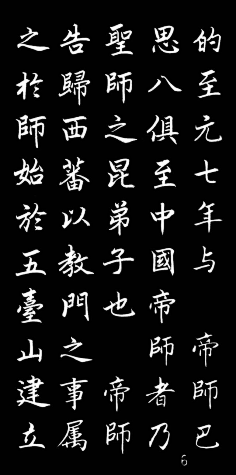 的至元七年与 帝師巴
思八俱至中國帝師者乃
聖師之昆弟子也 帝師
告歸西蕃以教門之事属
之扵師始於五臺山建立
6